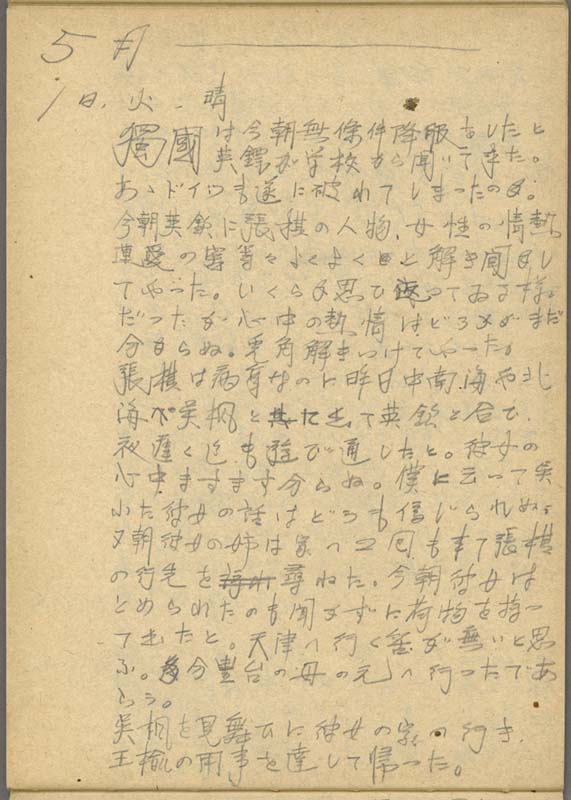 5月
1日. 火. 晴
獨國は今朝無條件降服をしたと
英鐸が学校から聞いて来た。
あゝドイツも遂に破れてしまったのダ。
今朝英欽に張棋の人物、女性の情熱
恋愛の害等々よくよくと解き聞かし
てやった。いくらか思ひ返っておる様
だったが心中の熱情はどうだかまだ
分からぬ。兎角解きつけてやった。
張棋は病育なのに昨日中南海や北
海で吳楓と て英欽と合で
夜遲く迄も遊び通したと。彼女の
心中ますます分らぬ。僕に云って笑
ふた彼女の話はどうも信じられぬ。
又朝彼女の姉は家へ2回も来て張棋
の行先を 尋ねた。今朝彼女は
とめられたのも聞かずに荷物を持っ
て出たと。天津へ行く筈が無いと思
ふ。多分豊台の母の元へ行ったであ
らう。
吳楓を見舞ひに彼女の家へ行き、
王楡の用事を達して帰った。